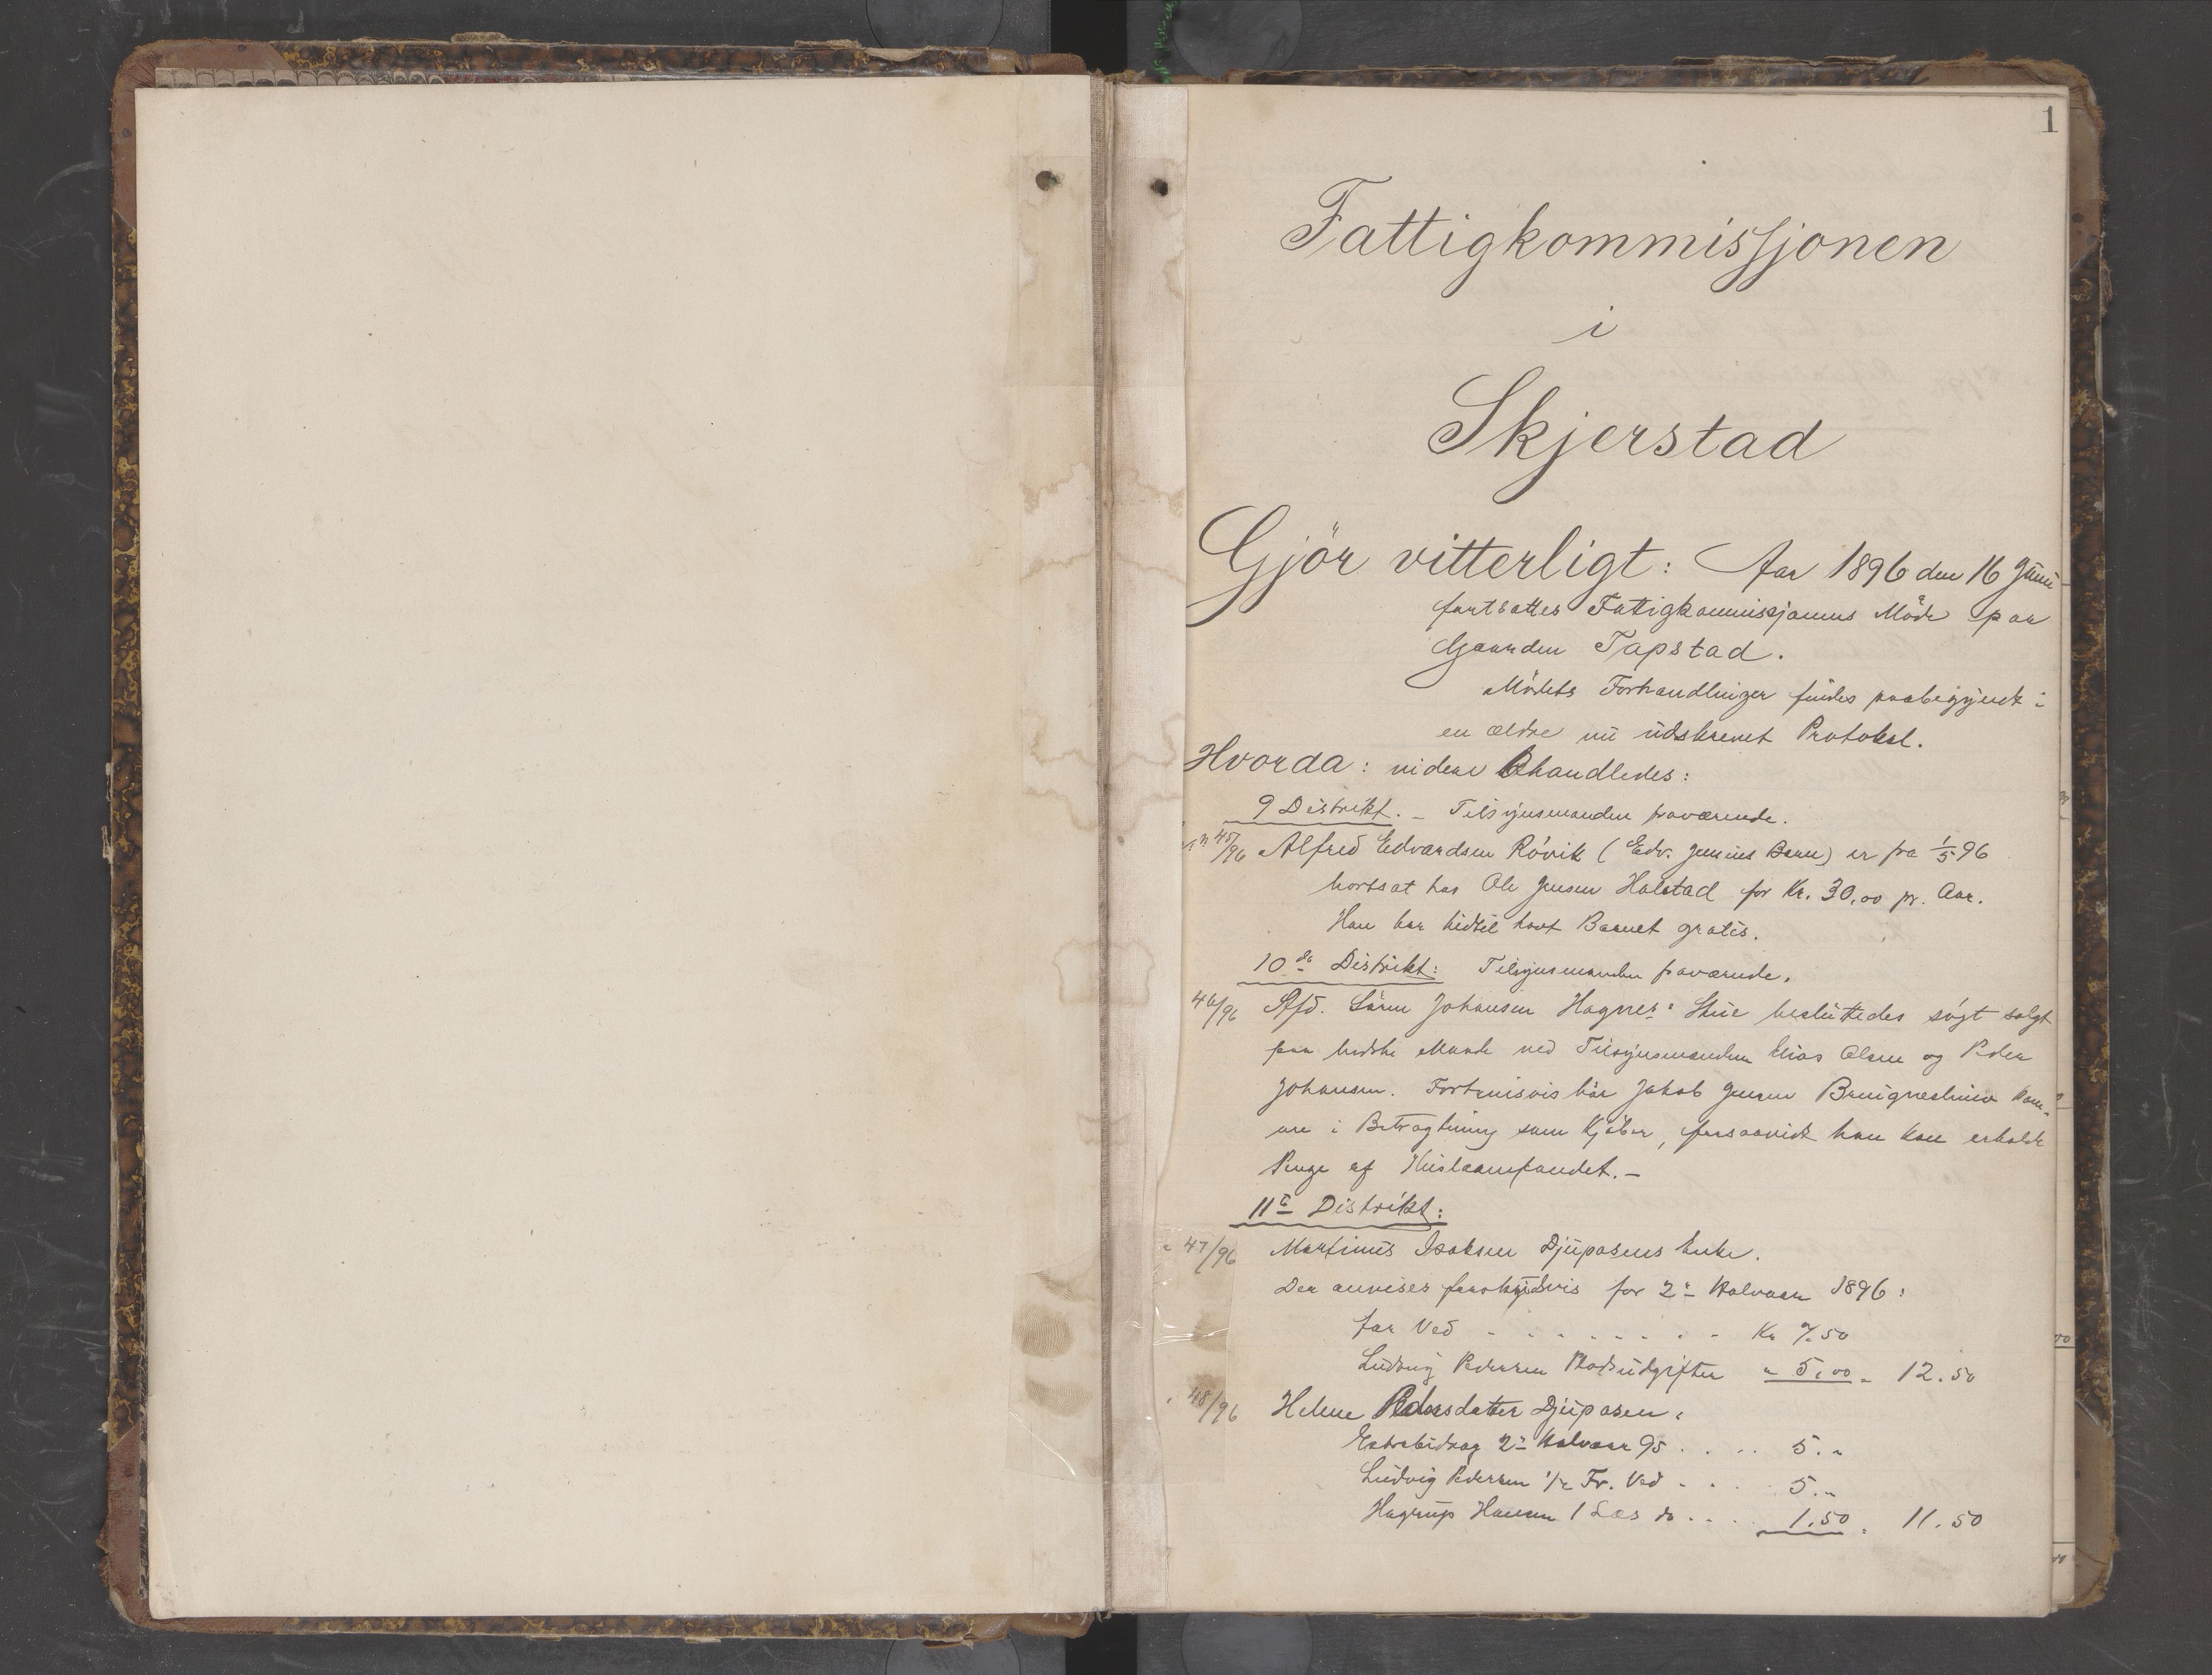 1
Fattigkommissjonen
i
Skjerstad
Gjör vitterligt: Aar 1896 den 16 Juni
fortsattes Fattigkommissjonens Möde paa
Gaarden Tapstad.
Mödets Forhandlinger findes paabegyndt i
en ældre nu udskrevet Protokol.
Hvorda: videre behandledes:
9 Distrikt. - Tilsynsmanden fraværende.
45/96 Alfred Edvardsen Rövik (Edv. Jensens Barn) er fra 1/5 96
bortsat hos Ole Jensen Halstad for Kr. 30,00 pr. Aar.
Han har hidtil havt Barnet gratis.
10de Distrikt: Tilsynsmanden fraværende.
46/96 Afd. Sören Johansen Hagnes: Stue besluttedes sögt solgt
paa bedste Maade ved Tilsynsmanden Elias Olsen og Peder
Johansen. Fortrinsvis bör Jakob Jensen kom-
me i Betragtning som Kjöber, forsaavidt han kan erholde
Penge af Huslaanfondet. -
11te Distrikt:
" 47/96 Martinus Isaksen Djuposens Enke.
Der anvises forskudsvis for 2det Halvaar 1896:
for Ved - - - - - Kr 7.50
Ludvig Pedersen Pladsudgifter " 5,00 " 12.50
" 48/96 Helene Pedersdatter Djuposen.
Extrabidrag 2det Halvaar 95 . . . . 5."
Ludvig Pedersen 1/2 Fv. Ved - . . 5."
Hagrup Hansen 1 Læs do . . . . 1.50 " 11.50